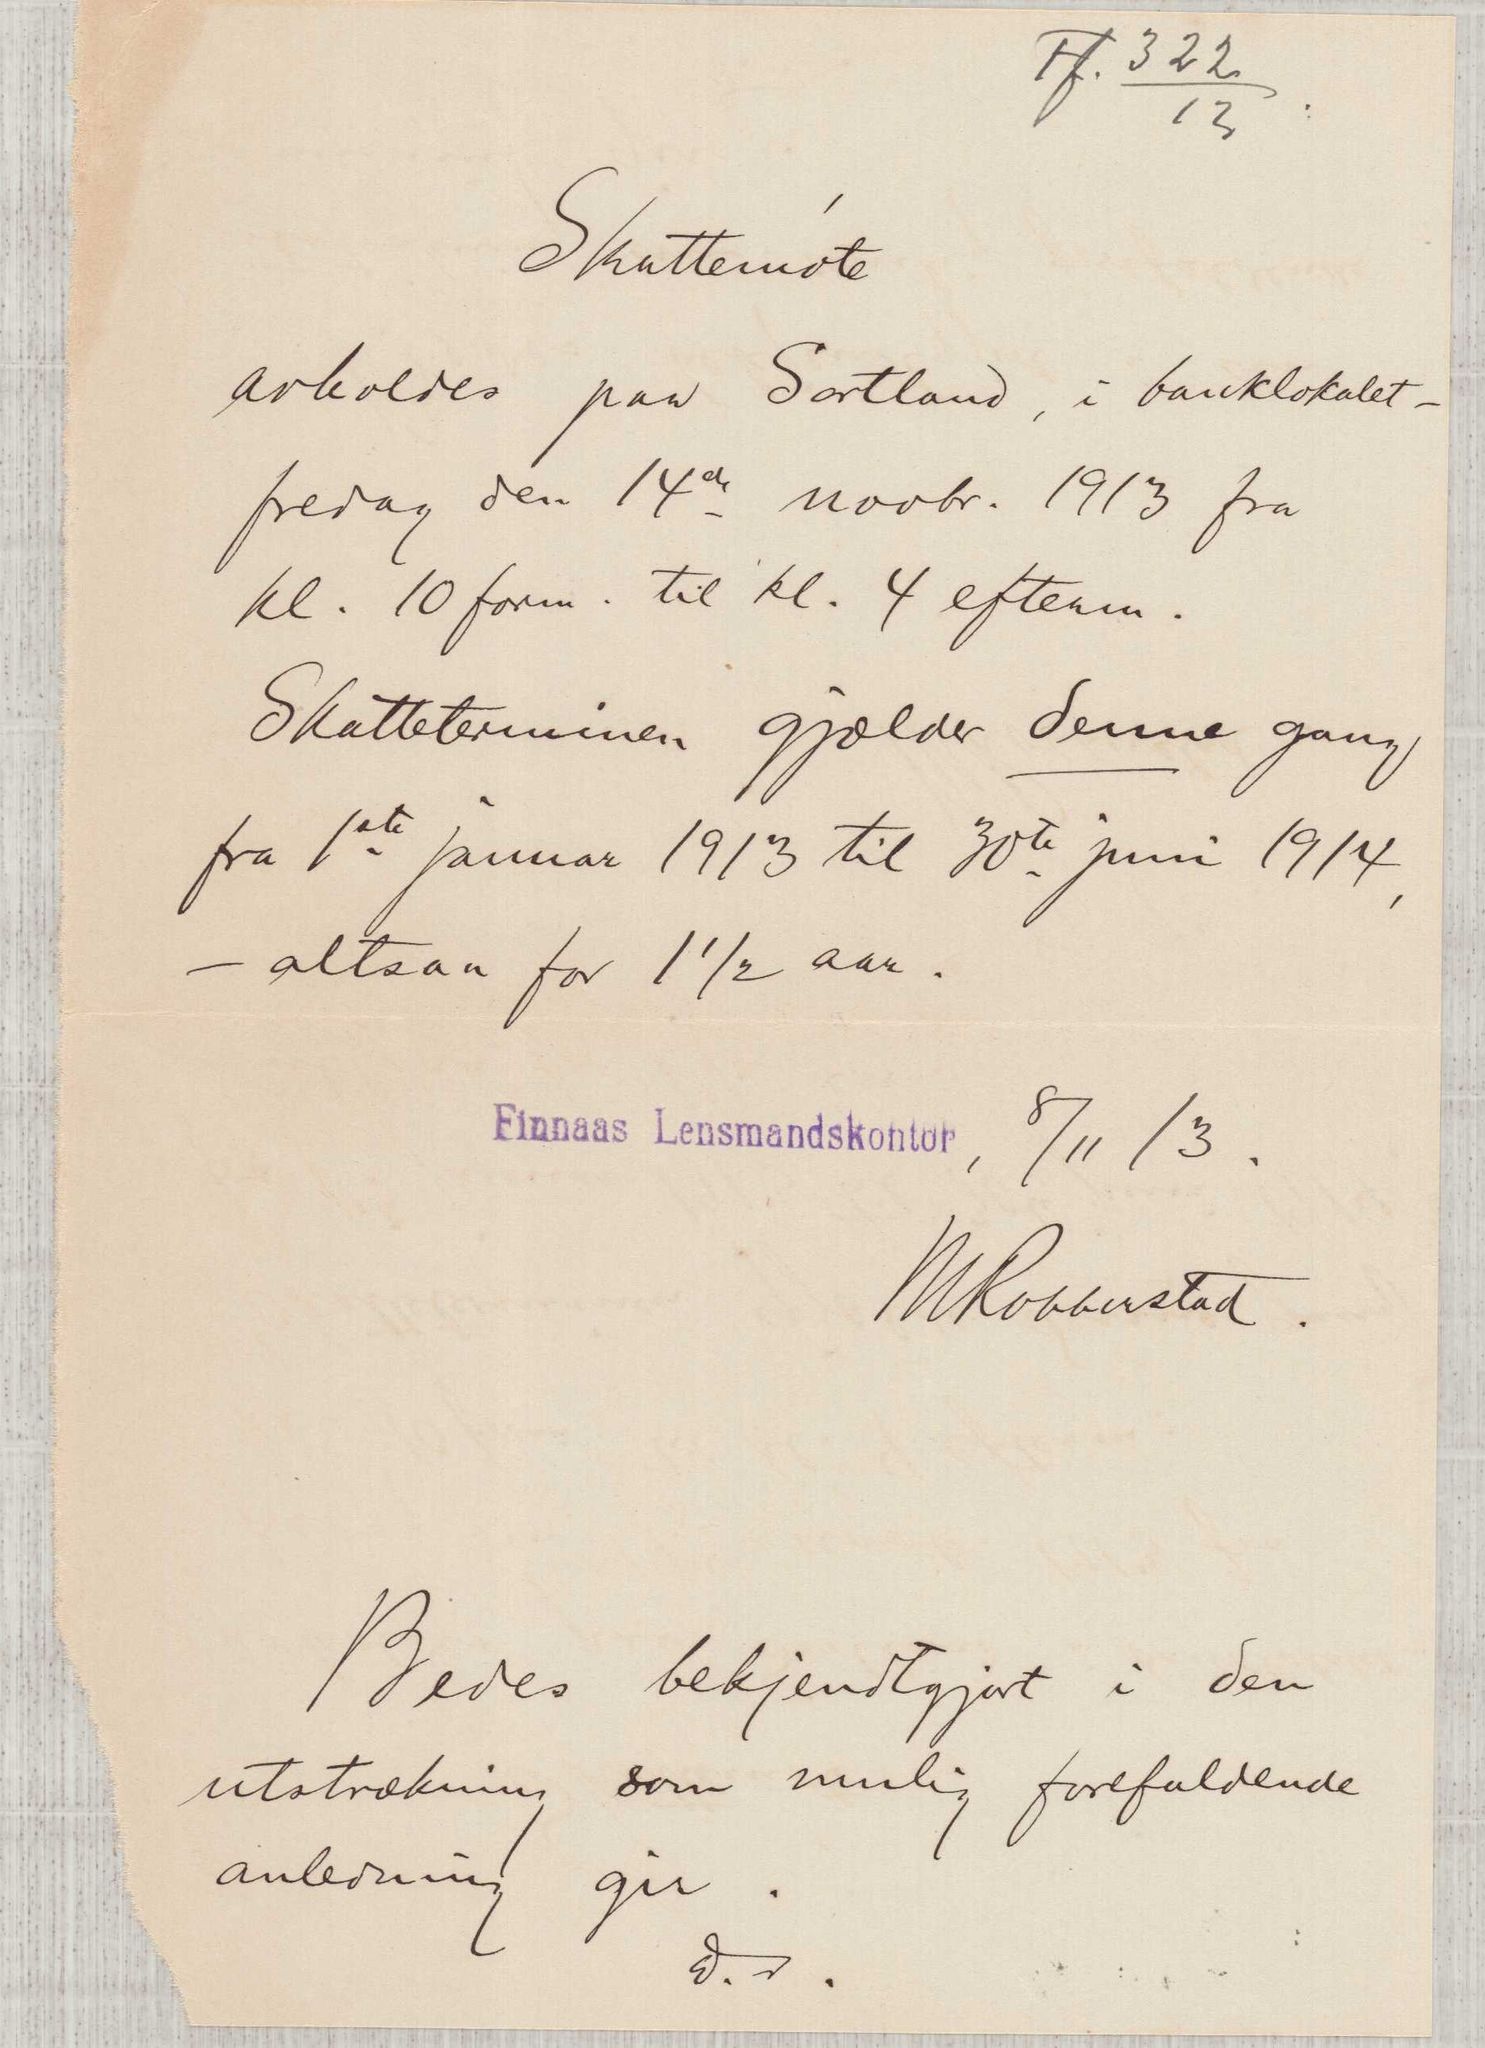 Ff. 322
13
Skattemöte
avholdes paa Sortland, i banklokalet -
fredag den 14de novbr. 1913 fra
kl. 10 form. til kl. 4 efterm.
Skatteterminen gjælder denne gang
fra 1ste januar 1913 til 30te juni 1914,
- altsaa for 1 1/2 aar.
Finnaas Lensmandskontor, 8/11 13.
MRobberstad.
Bedes bekjendtgjort i den
utstrækning som mulig forefaldende
anledning gir.
D. s.